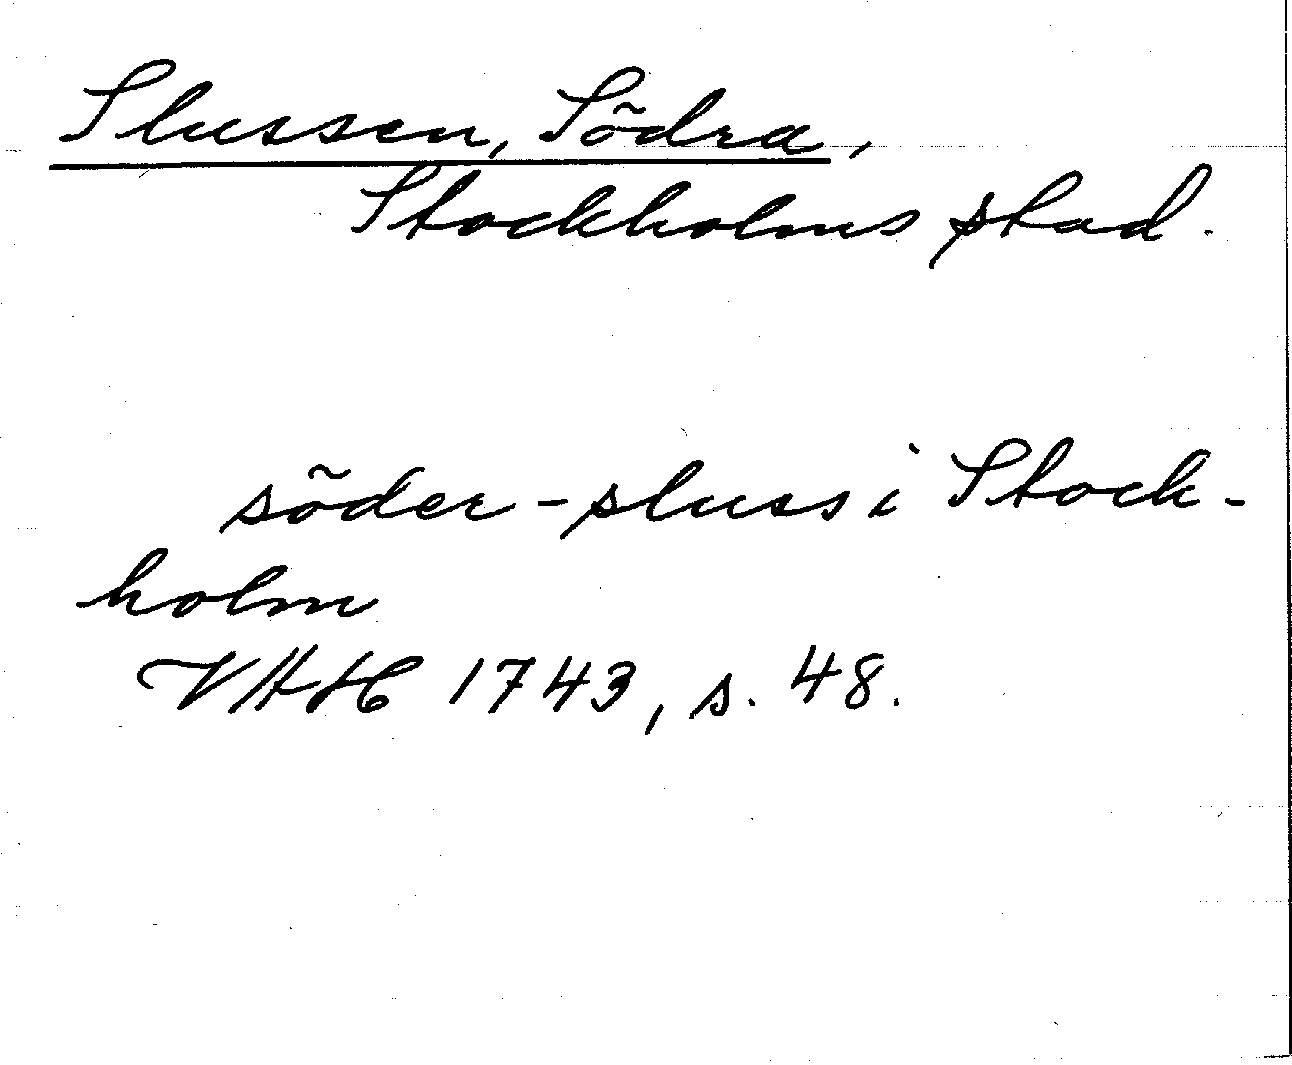 Slussen, Södra,
Stockholms stad.
söder-sluss i Stock-
holm
VAH 1743, s. 48.